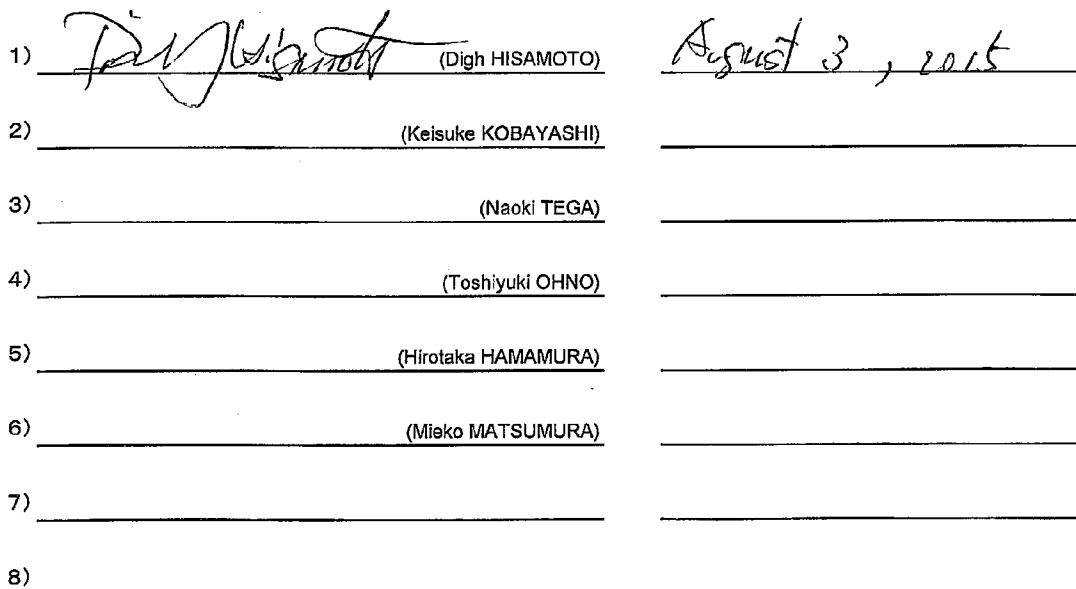 1) Digh Hisamoto (Digh HISAMOTO) August 3, 2015
2) (Keisuke KOBAYASHI)
3) (Naoki TEGA)
4) (Toshiyuki OHNO)
5) (Hirotaka HAMAMURA)
6) (Mieko MATSUMURA)
7)
8)